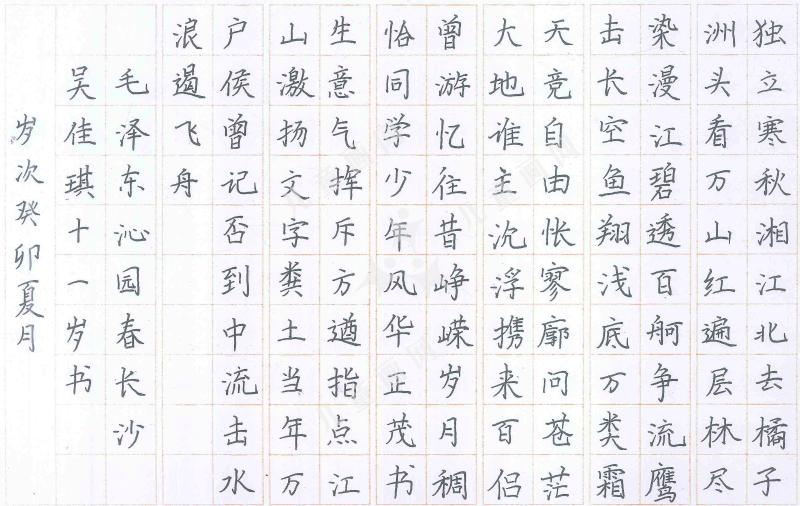 独立寒秋湘江北去橘子
洲头看万山红遍层林尽
染漫江碧透百舸争流鹰
击长空鱼翔浅底万类霜
天竞自由怅寥廓问苍茫
大地谁主沉浮携来百侣
曾游忆往昔峥嵘岁月稠
恰同学少年风华正茂书
生意气挥斥方遒指点江
山激扬文字粪土当年万
户侯曾记否到中流击水
浪遏飞舟
毛泽东沁园春长沙
吴佳琪十一岁书
岁次癸卯夏月